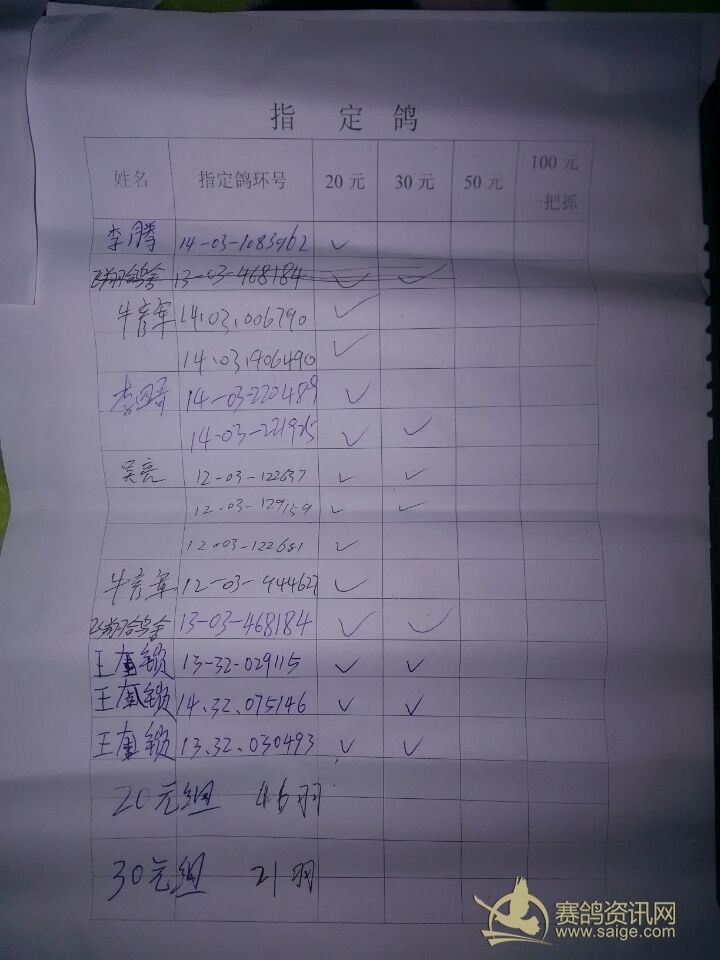 指 定 鸽
姓名 指定鸽环号 20元 30元 50元 100元
一把抓
李腾 14-03-1083962 ✓
13-03-468184 ✓ ✓
牛彦军 14.03.006790 ✓
14.03.906490 ✓
14-03-220489 ✓
14-03-221925 ✓ ✓
吴亮 12-03-122637 ✓ ✓
12-03-129159 ✓ ✓
12-03-122681 ✓
牛彦军 12-03-944627 ✓
13-03-468184 ✓ ✓
13-32-029115 ✓ ✓
14.32.075146 ✓ ✓
13.32.030493 ✓ ✓
20元组 46羽
30元组 21羽
赛鸽资讯网
www.saige.com